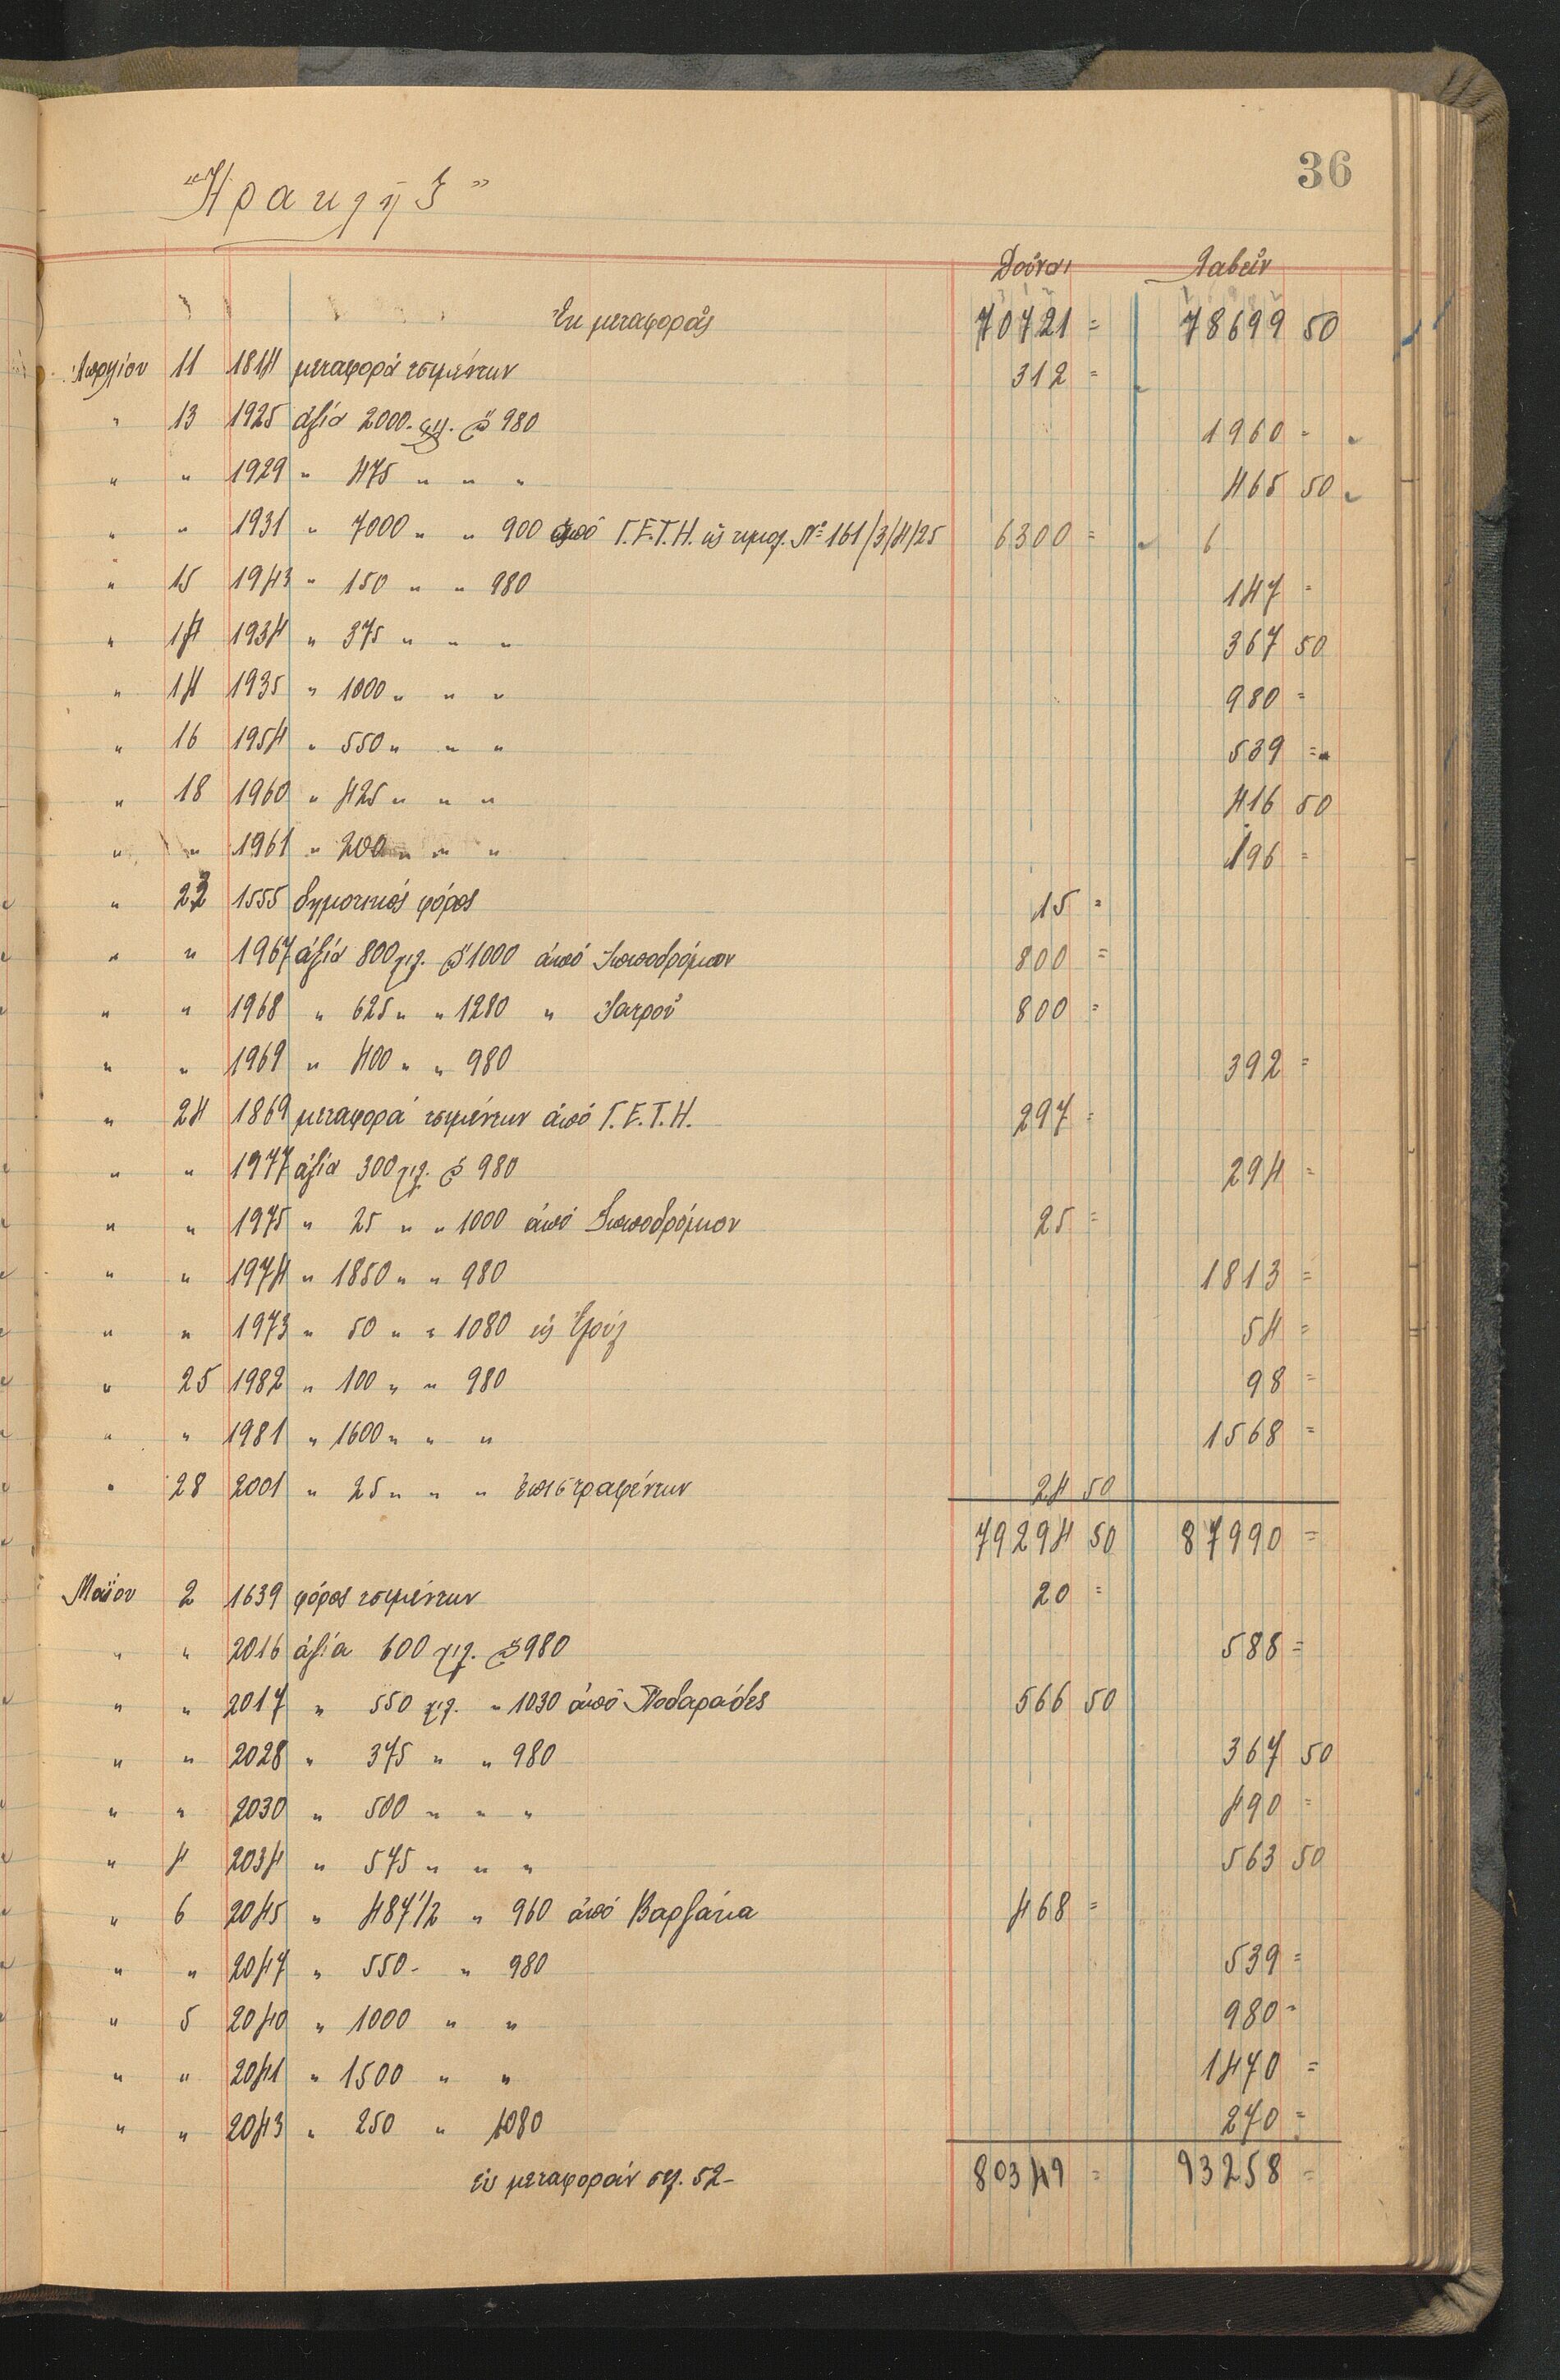 36
"Ηρακλῆς"
Δοῦναι Λαβεῖν
Ἐκ μεταφορᾶς 70721 = 78699 50
Ἀπριλίου 11 1814 μεταφορά τσιμέντων 312 =
" 13 1925 ἀξία 2000 χιλ. @ 980 1960 =
" " 1929 " 475 " " " 465 50
" " 1931 " 7000 " " 900 ἀπό Γ.Ε.Τ.Η. ὡς τιμολ. Nº 161/3/4/25 6300 = 6
" 15 1943 " 150 " " 980 147 =
" 14 1934 " 375 " " " 367 50
" 14 1935 " 1000 " " " 980 =
" 16 1954 " 550 " " " 539 =
" 18 1960 " 425 " " " 416 50
" " 1961 " 200 " " " 196 =
" 22 1555 δημοτικός φόρος 15 =
" " 1967 ἀξία 800 χιλ. @ 1000 ἀπό Ἱπποδρόμιον 800 =
" " 1968 " 625 " " 1280 " Ἰατροῦ 800 =
" " 1969 " 400 " " 980 392 =
" 24 1869 μεταφορά τσιμέντων ἀπό Γ.Ε.Τ.Η. 297 =
" " 1977 ἀξία 300 χιλ. @ 980 294 =
" " 1975 " 25 " " 1000 ἀπό Ἱπποδρόμιον 25 =
" " 1974 " 1850 " " 980 1813 =
" " 1973 " 50 " " 1080 εἰς 54 =
" 25 1982 " 100 " " 980 98 =
" " 1981 " 1600 " " " 1568 =
" 28 2001 " 25 " " " ἐπιστραφέντων 24 50
79294 50 87990 =
Μαΐου 2 1639 φόρος τσιμέντων 20 =
" " 2016 ἀξία 600 χιλ. @ 980 588 =
" " 2017 " 550 χιλ. " 1030 ἀπό Ποδαράδες 566 50
" " 2028 " 375 " " 980 367 50
" " 2030 " 500 " " " 490 =
" 4 2034 " 575 " " " 563 50
" 6 2045 " 487 1/2 " 960 ἀπό Βαρζάκα 468 =
" " 2047 " 550 - " 980 539 =
" 5 2040 " 1000 " " 980 =
" " 2041 " 1500 " " 1470 =
" " 2043 " 250 " 1080 270 =
εἰς μεταφοράν σελ. 52- 80349 = 93258 =